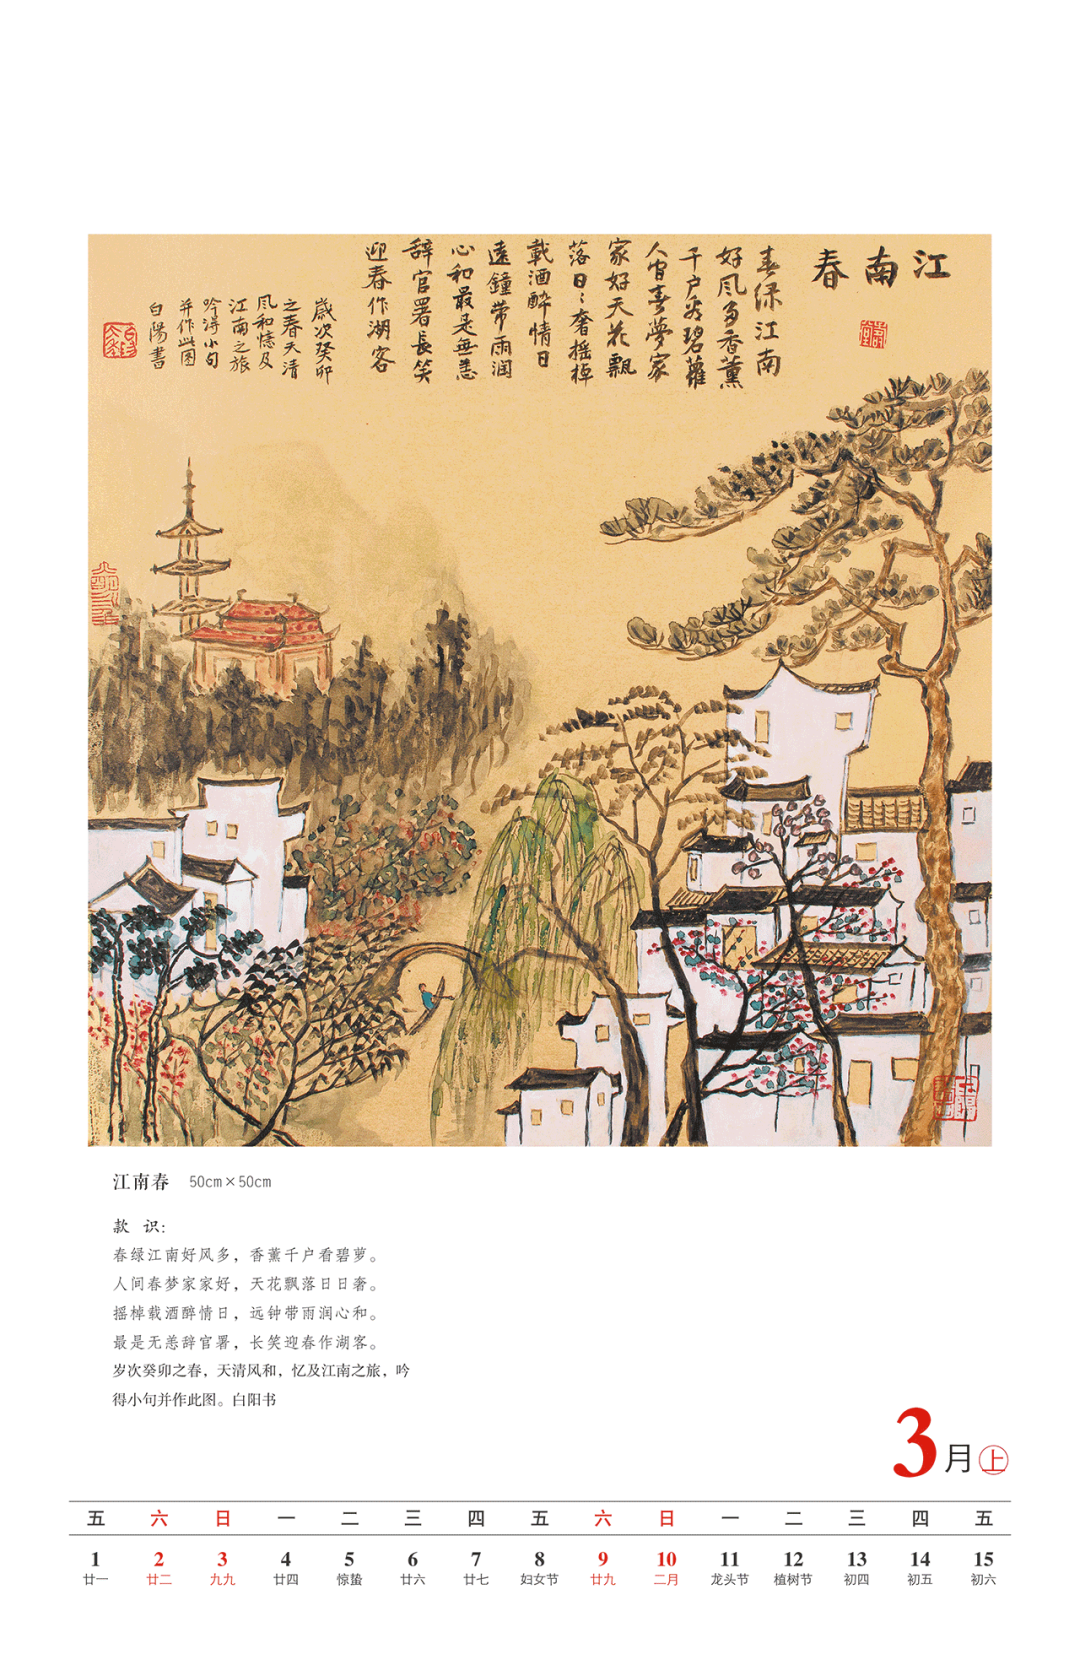 江南春
春绿江南
好风多香薰
千户看碧蘿
人间春夢家
家好天花飄
落日日奢摇棹
載酒醉情日
遠鐘带雨润
心和最是無恙
辞官署長笑
迎春作湖客
歲次癸卯
之春天清
风和憶及
江南之旅
吟得小句
并作此图
白陽書
江南春 50cm×50cm
款 识：
春绿江南好风多，香薰千户看碧萝。
人间春梦家家好，天花飘落日日奢。
摇棹载酒醉情日，远钟带雨润心和。
最是无恙辞官署，长笑迎春作湖客。
岁次癸卯之春，天清风和，忆及江南之旅，吟
得小句并作此图。白阳书
3月上
五 六 日 一 二 三 四 五 六 日 一 二 三 四 五
1 2 3 4 5 6 7 8 9 10 11 12 13 14 15
廿一 廿二 九九 廿四 惊蛰 廿六 廿七 妇女节 廿九 二月 龙头节 植树节 初四 初五 初六